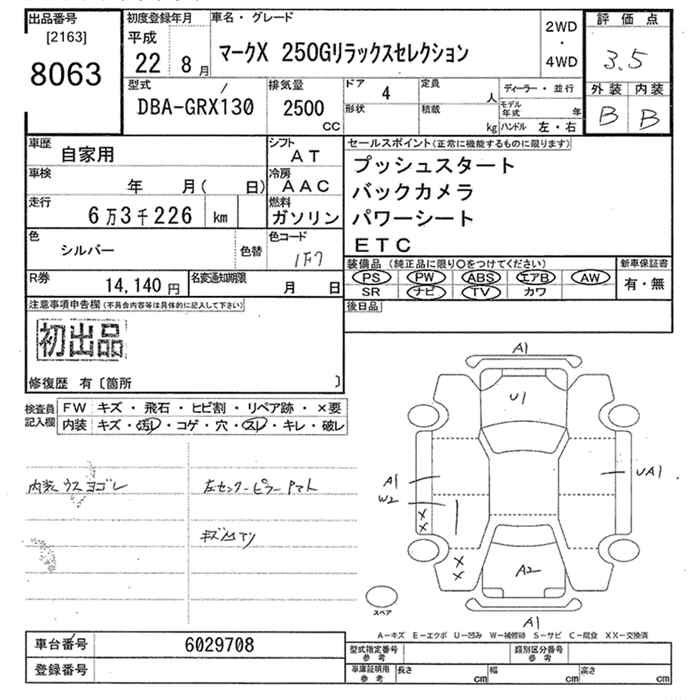 出品番号
[2163]
8063
初度登録年月
平成
22 8月
車名・グレード
マークX 250Gリラックスセレクション
2WD
・
4WD
評価点
3.5
外装 内装
B B
型式
DBA-GRX130
排気量
2500
CC
ドア 4
形状
定員 人
積載 kg
ディーラー・並行
モデル年式 年
ハンドル 左・右
車歴 自家用
車検 年 月( 日)
走行 6万3千226 km
色 シルバー 色替
シフト AT
冷房 AAC
燃料 ガソリン
色コード 1F7
セールスポイント(正常に機能するものに限ります)
プッシュスタート
バックカメラ
パワーシート
ETC
R券 14,140円
名変通知期限 月 日
装備品(純正品に限り○をつけてください)
PS PW ABS エアB AW
SR ナビ TV カワ
新車保証書
有・無
注意事項申告欄(不具合内容等は具体的に記入して下さい)
初出品
修復歴 有〔箇所 〕
後日品
検査員記入欄
FW キズ・飛石・ヒビ割・リペア跡・×要
内装 キズ・汚レ・コゲ・穴・スレ・キレ・破レ
内装ウスヨゴレ
左センターピラーアマト
キズ凹アリ
A1
U1
A1
W2
UA1
×
×
×
×
A2
A1
スペア
A−キズ E−エクボ U−凹み W−補修跡 S−サビ C−腐食 XX−交換済
車台番号 6029708
登録番号
型式指定番号 参考
類別区分番号 参考
車庫証明用 参考
長さ cm 幅 cm 高さ cm